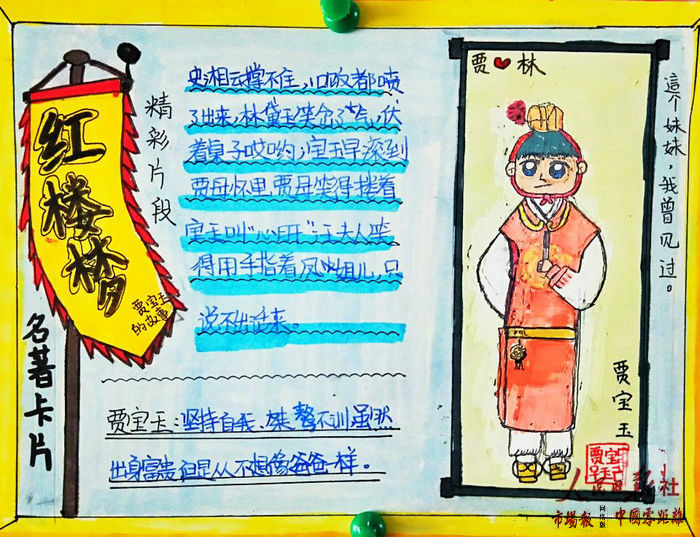 红楼梦
贾宝玉
的故事
名著卡片
精彩片段
史湘云撑不住,口饭都喷
了出来,林黛玉笑岔了气,伏
着桌子哎哟,宝玉早滚到
贾母怀里,贾母笑得搂着
宝玉叫“心肝”,王夫人笑
得用手指着凤姐儿,只
说不出话来。
贾宝玉:坚持自我、桀骜不训虽然
出身富贵但是从不想像爸爸一样。
贾❤林
贾宝玉
這个妹妹,我曾见过。
贾宝玉印
市場報 网络版 中國零距離